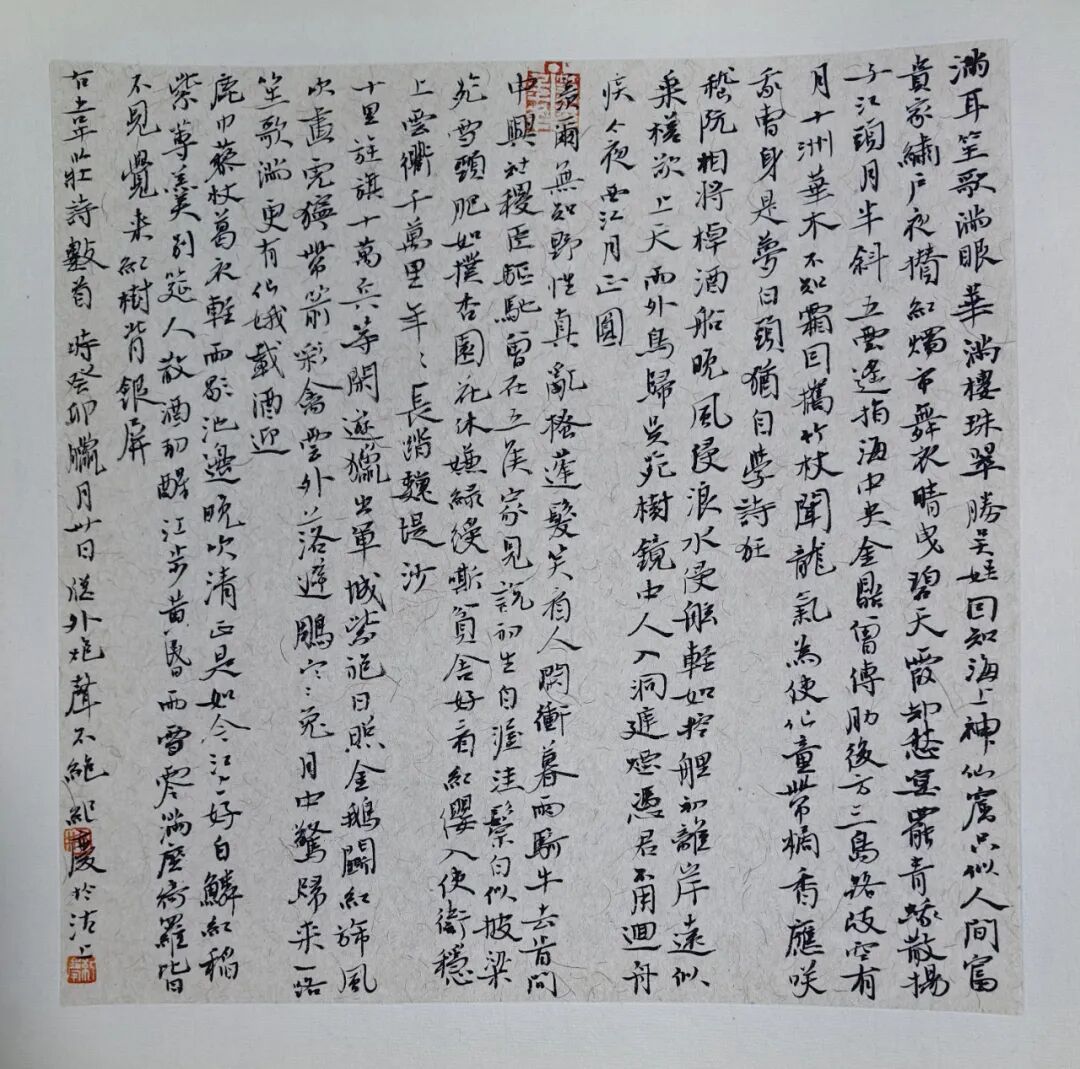 滿耳笙歌滿眼華滿樓珠翠勝吳娃因知海上神仙窟只似人間富
貴家繡戶夜攢紅燭市舞衣晴曳碧天霞却愁宴罷青蛾散揚
子江頭月半斜五雲遙指海中央金鼎曾傳肘後方三島路歧空有
月十洲華木不知霜因攜竹杖聞龍氣為使仙童帶橘香應咲
我曹身是夢白頭猶自學詩狂
嵇阮相將棹酒船晚風侵浪水侵舷輕如控鯉初離岸遠似
乘槎欲上天雨外鳥歸吳苑樹鏡中人入洞庭煙憑君不用迴舟
疾今夜西江月正圓
蒙爾無知野性真亂搔蓬髮笑看人閑衝暮雨騎牛去肯問
中興社稷臣驅馳曾在五侯家見說初生自渥洼鬃白似披梁
苑雪頸肥如撲杏園花休嫌綠綬嘶貧舍好看紅纓入使衙穩
上雲衢千萬里年〻長踏魏堤沙
十里旌旗十萬兵等閑遊獵出軍城紫袍日照金鵝鬭紅旆風
吹畫虎獰帶箭彩禽雲外落避鵰寒兔月中驚歸來一路
笙歌滿更有仙娥載酒迎
鹿巾藜杖葛衣輕雨歇池邊晚吹清正是如今江上好白鱗紅稻
紫蓴羹別筵人散酒初醒江步黃昏雨雪零滿座綺羅皆
不見覺來紅樹背銀屏
右書韋莊詩數首時癸卯臘月卅日牕外炮聲不絕紀慶於沽上